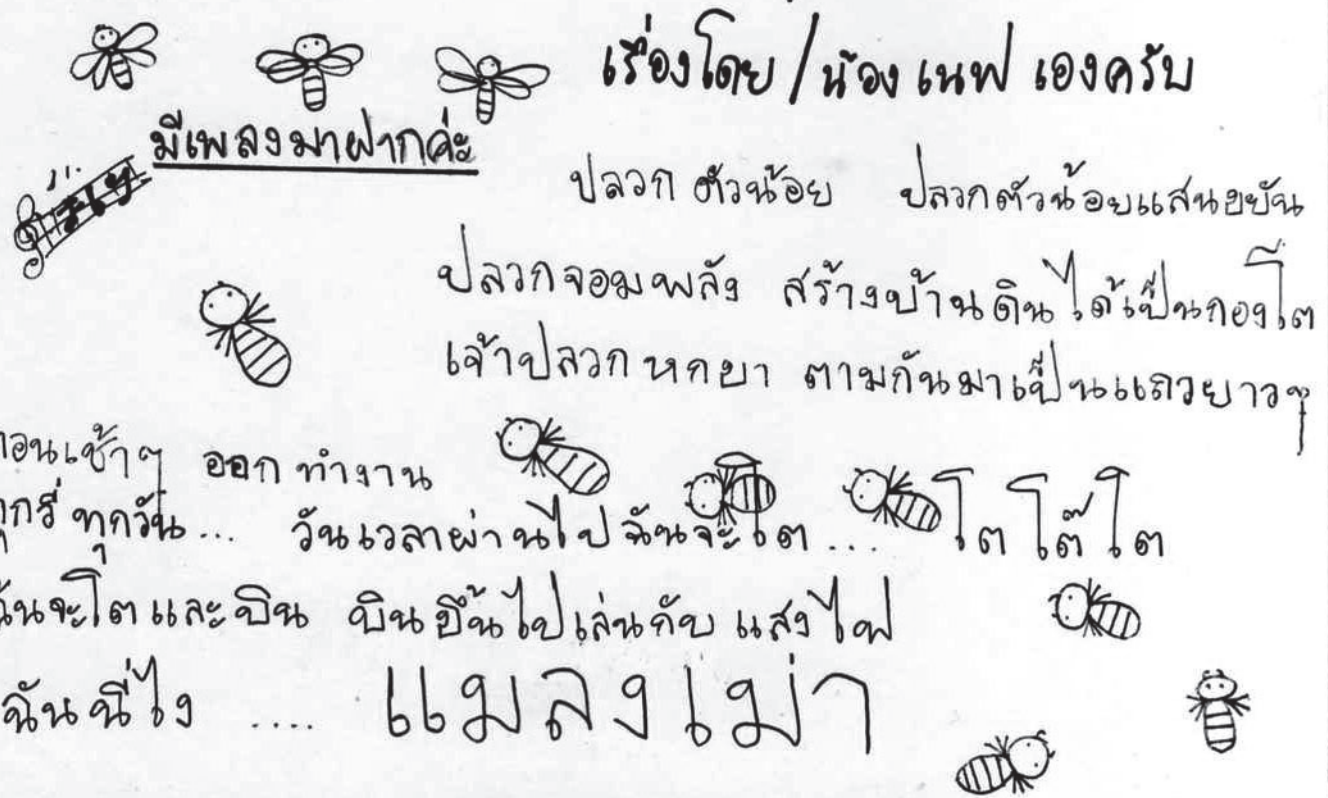 เรื่องโดย / น้อง เนฟ เองครับ
มีเพลงมาฝากค่ะ
ปลวก ตัวน้อย ปลวกตัวน้อยแสนขยัน
ปลวกจอมพลัง สร้างบ้านดินได้เป็นกองโต
เจ้าปลวกหกขา ตามกันมาเป็นแถวยาวๆ
ตอนเช้าๆ ออก ทำงาน
ทุกวัน...
วันเวลาผ่านไป ฉันจะโต.... โต โต๊ โต
ฉันจะโตและบิน บินขึ้นไปเล่นกับ แสงไฟ
ฉันนี่ไง .... แมลงเม่า